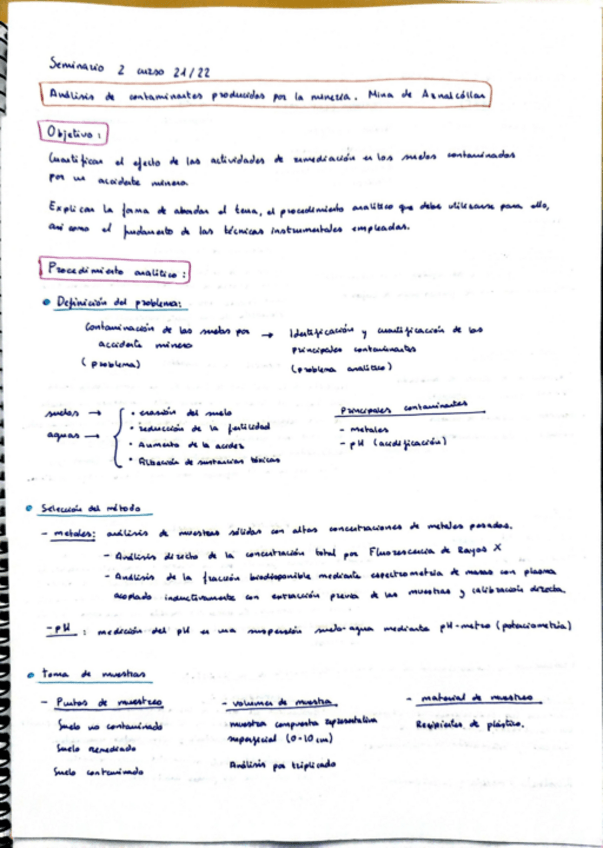 Seminario 2 curso 21/22
Análisis de contaminantes producidos por la minería. Mina de Aznalcóllar
Objetivo:
Cuantificar el efecto de las actividades de remediación en los suelos contaminados
por un accidente minero.
Explicar la forma de abordar el tema, el procedimiento analítico que debe utilizarse para ello,
así como el fundamento de las técnicas instrumentales empleadas.
Procedimiento analítico:
• Definición del problema:
Contaminación de los suelos por → Identificación y cuantificación de los
accidente minero principales contaminantes
(problema) (problema analítico)
suelos → • erosión del suelo
aguas → • reducción de la fertilidad
• Aumento de la acidez
• Liberación de sustancias tóxicas
Principales contaminantes
- metales
- pH (acidificación)
• Selección del método
- metales: análisis de muestras sólidas con altas concentraciones de metales pesados.
- Análisis directo de la concentración total por Fluorescencia de Rayos X
- Análisis de la fracción biodisponible mediante espectrometría de masas con plasma
acoplado inductivamente con extracción previa de las muestras y calibración directa.
- pH : medición del pH en una suspensión suelo-agua mediante pH-metro (potenciometría)
• Toma de muestras
- Puntos de muestreo
Suelo no contaminado
Suelo Remediado
Suelo contaminado
- volumen de muestra
muestra compuesta representativa
superficial (0-10 cm)
Análisis por triplicado
- material de muestreo
Recipientes de plástico.